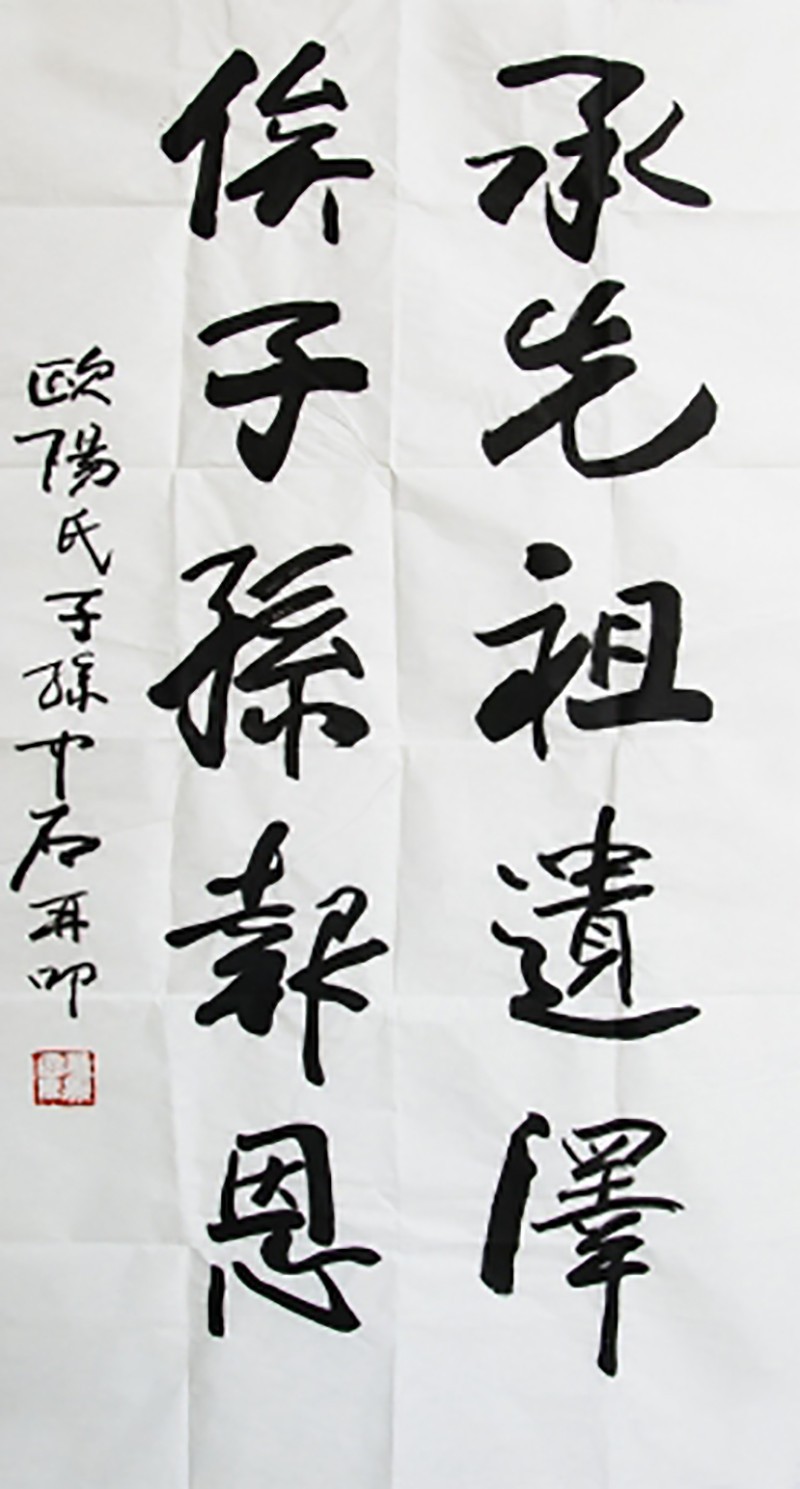 承先祖遺澤
俟子孫報恩
歐陽氏子孫中石再叩